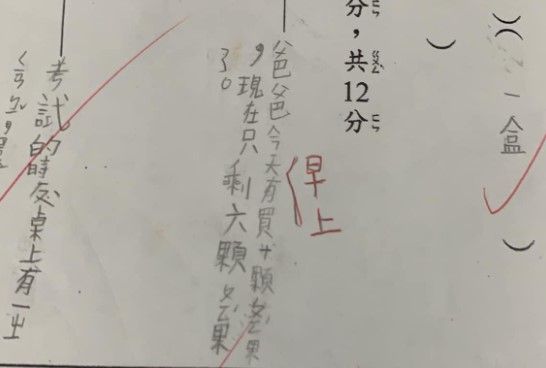 ）（一盒）
）
分，共12分
早上
爸爸今天有買十顆芒果
，現在只剩六顆芒果
了。
考試的時桌上有一